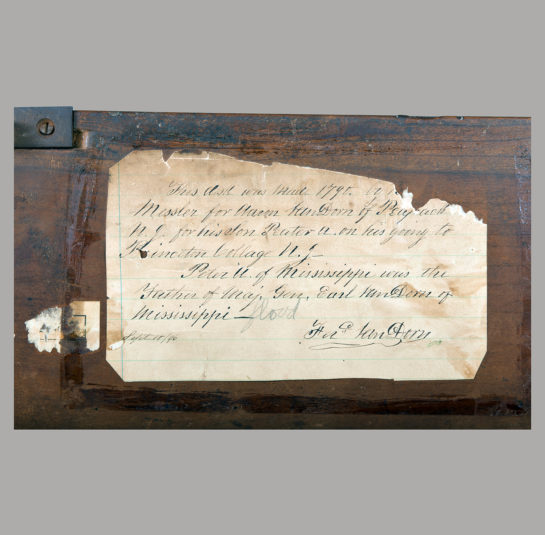 This desk was made 1790. by
Messler for Aaron Van Dorn of Peapack
N.J. for his son Peter A. on his going to
Princeton Collage N.J—
Peter A. of Mississippi was the
Father of Maj. Gen. Earl Van Dorn of
Mississippi —
Sept 10/90
Ferd Van Dorn